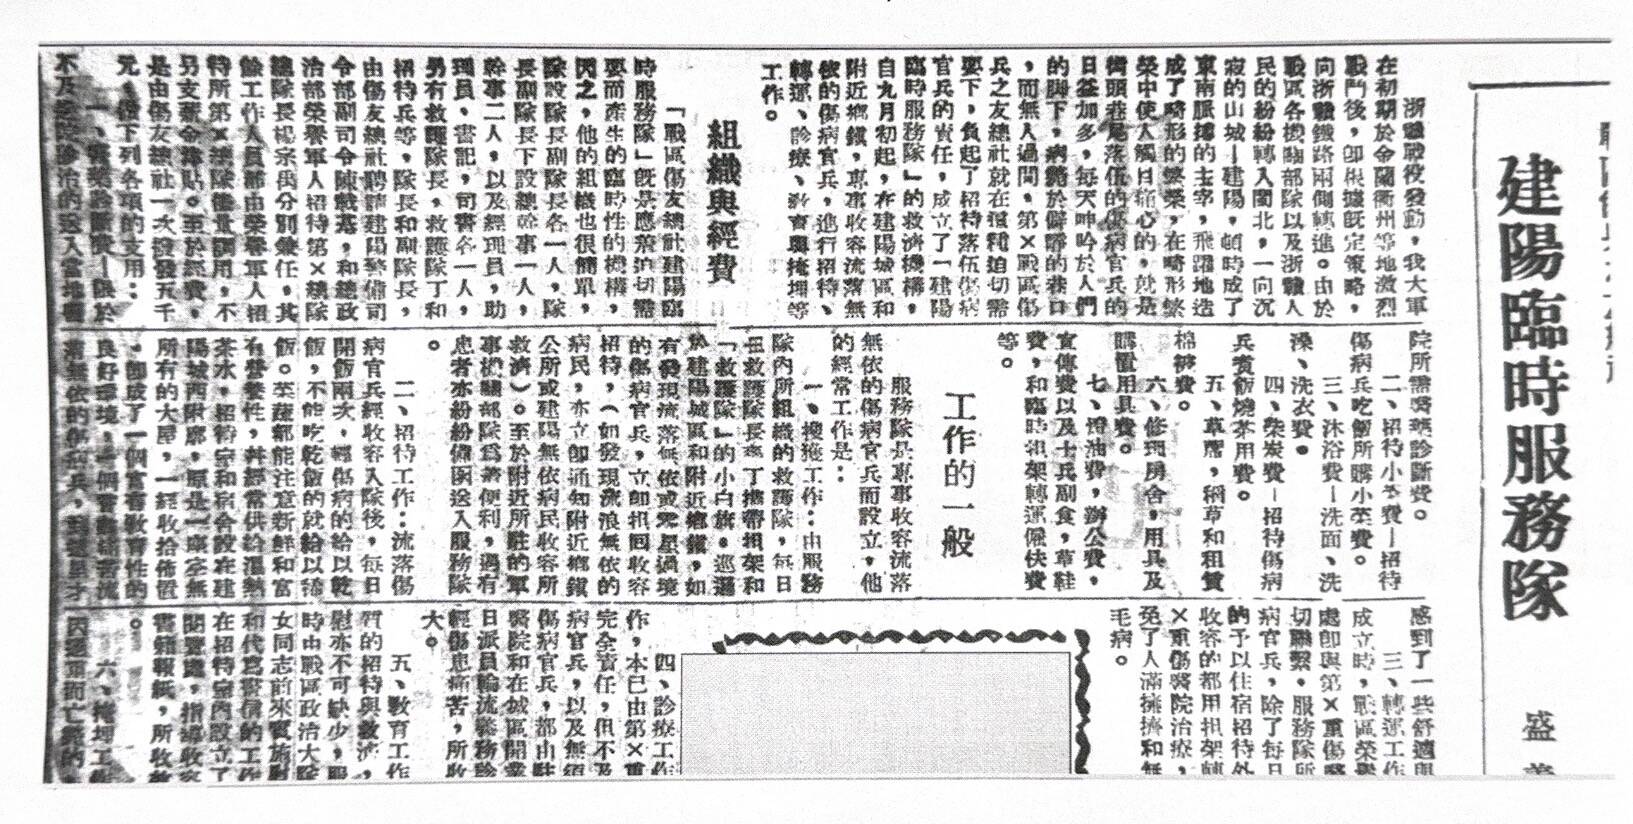 建陽臨時服務隊
盛
浙贛戰役發動,我大軍
在初期於金蘭衢州等地激烈
戰鬥後,卽根據旣定策略,
向浙贛鐵路兩側轉進。由於
戰區各機關部隊以及浙贛人
民的紛紛轉入閩北,一向沉
寂的山城—建陽,頓時成了
東南脈搏的主宰,飛躍地造
成了畸形的繁榮,在畸形繁
榮中使人觸目痛心的,就是
街頭巷尾落伍的傷病官兵的
日益加多,每天呻吟於人們
的脚下,病斃於僻靜的巷口
,而無人過問。第×戰區傷
兵之友總社就在這種迫切需
要下,負起了招待落伍傷病
官兵的責任,成立了「建陽
臨時服務隊」的救濟機構,
自九月初起,在建陽城區和
附近鄉鎮,專事收容流落無
依的傷病官兵,進行招待、
轉運、診療、敎育與掩埋等
工作。
組織與經費
「戰區傷友總社建陽臨
時服務隊」旣是應乎迫切需
要而產生的臨時性的機構,
因之,他的組織也很簡單,
除設隊長副隊長各一人,隊
長副隊長下設總幹事一人,
幹事二人,以及經理員,助
理員,書記,司書各一人,
另有救護隊長,救護隊丁和
招待兵等,隊長和副隊長,
由傷友總社聘請建陽警備司
令部副司令陳戴基,和總政
治部榮譽軍人招待第×總隊
總隊長楊永禹分別兼任,其
餘工作人員都由榮譽軍人招
待所第×總隊儘量調用,不
另支薪金津貼。至於經費,
是由傷友總社一次撥發五千
元,備下列各項的支用:
一、醫藥診斷費—限於
不及送院診治的送入當地醫
院所需醫藥診斷費。
二、招待小菜費—招待
傷病兵吃飯所購小菜費。
三、沐浴費—洗面、洗
澡、洗衣費。
四、柴炭費—招待傷病
兵煮飯燒茶用費。
五、草席,稻草和租賃
棉被費。
六、修理房舍,用具及
購置用具費。
七、燈油費,辦公費,
宣傳費以及士兵副食,草鞋
費,和臨時担架轉運伕費
等。
工作的一般
服務隊是專事收容流落
無依的傷病官兵而設立,他
的經常工作是:
一、搜護工作:由服務
隊內所組織的救護隊,每日
由救護隊長率丁攜帶担架和
「救護隊」的小白旗。巡邏
於建陽城區和附近鄉鎮,如
有發現流落無依或零星過境
的傷病官兵,立卽担回收容
招待,(如發現流浪無依的
病民,亦立卽通知附近鄉鎮
公所或建陽無依病民收容所
救濟)。至於附近所駐的軍
事機關部隊爲着便利,遇有
患者亦紛紛備函送入服務隊
。
二、招待工作:流落傷
病官兵經收容入隊後,每日
開飯兩次,輕傷病的給以乾
飯,不能吃乾飯的就給以稀
飯。菜蔬都能注意新鮮和富
有營養性,幷經常供給溫熱
茶水,招待室和宿舍設在建
陽城西附廓,原是一座空無
所有的大屋,一經收拾佈置
,卽成了一個富有敎育性的
良好環境,
感到了一些舒適與
三、轉運工作
成立時,戰區榮譽
處卽與第×重傷醫
切聯繫。服務隊所
病官兵,除了每日
的予以住宿招待外
收容的都用担架轉
×重傷醫院治療,
免了人滿擁擠和無
毛病。
四、診療工作
作,本已由第×重
完全責任,但不及
病官兵,以及無須
傷病官兵,都由駐
醫院和在城區開業
日派員輪流義務診
輕傷患痛苦,所收
大。
五、敎育工作
質的招待與救濟,
慰亦不可缺少,服
時由戰區政治大隊
女同志前來實施慰
和代寫書信的工作
在招待室內設立了
閱覽處,指導收容
書籍報紙,所收效
。
六、掩埋工作